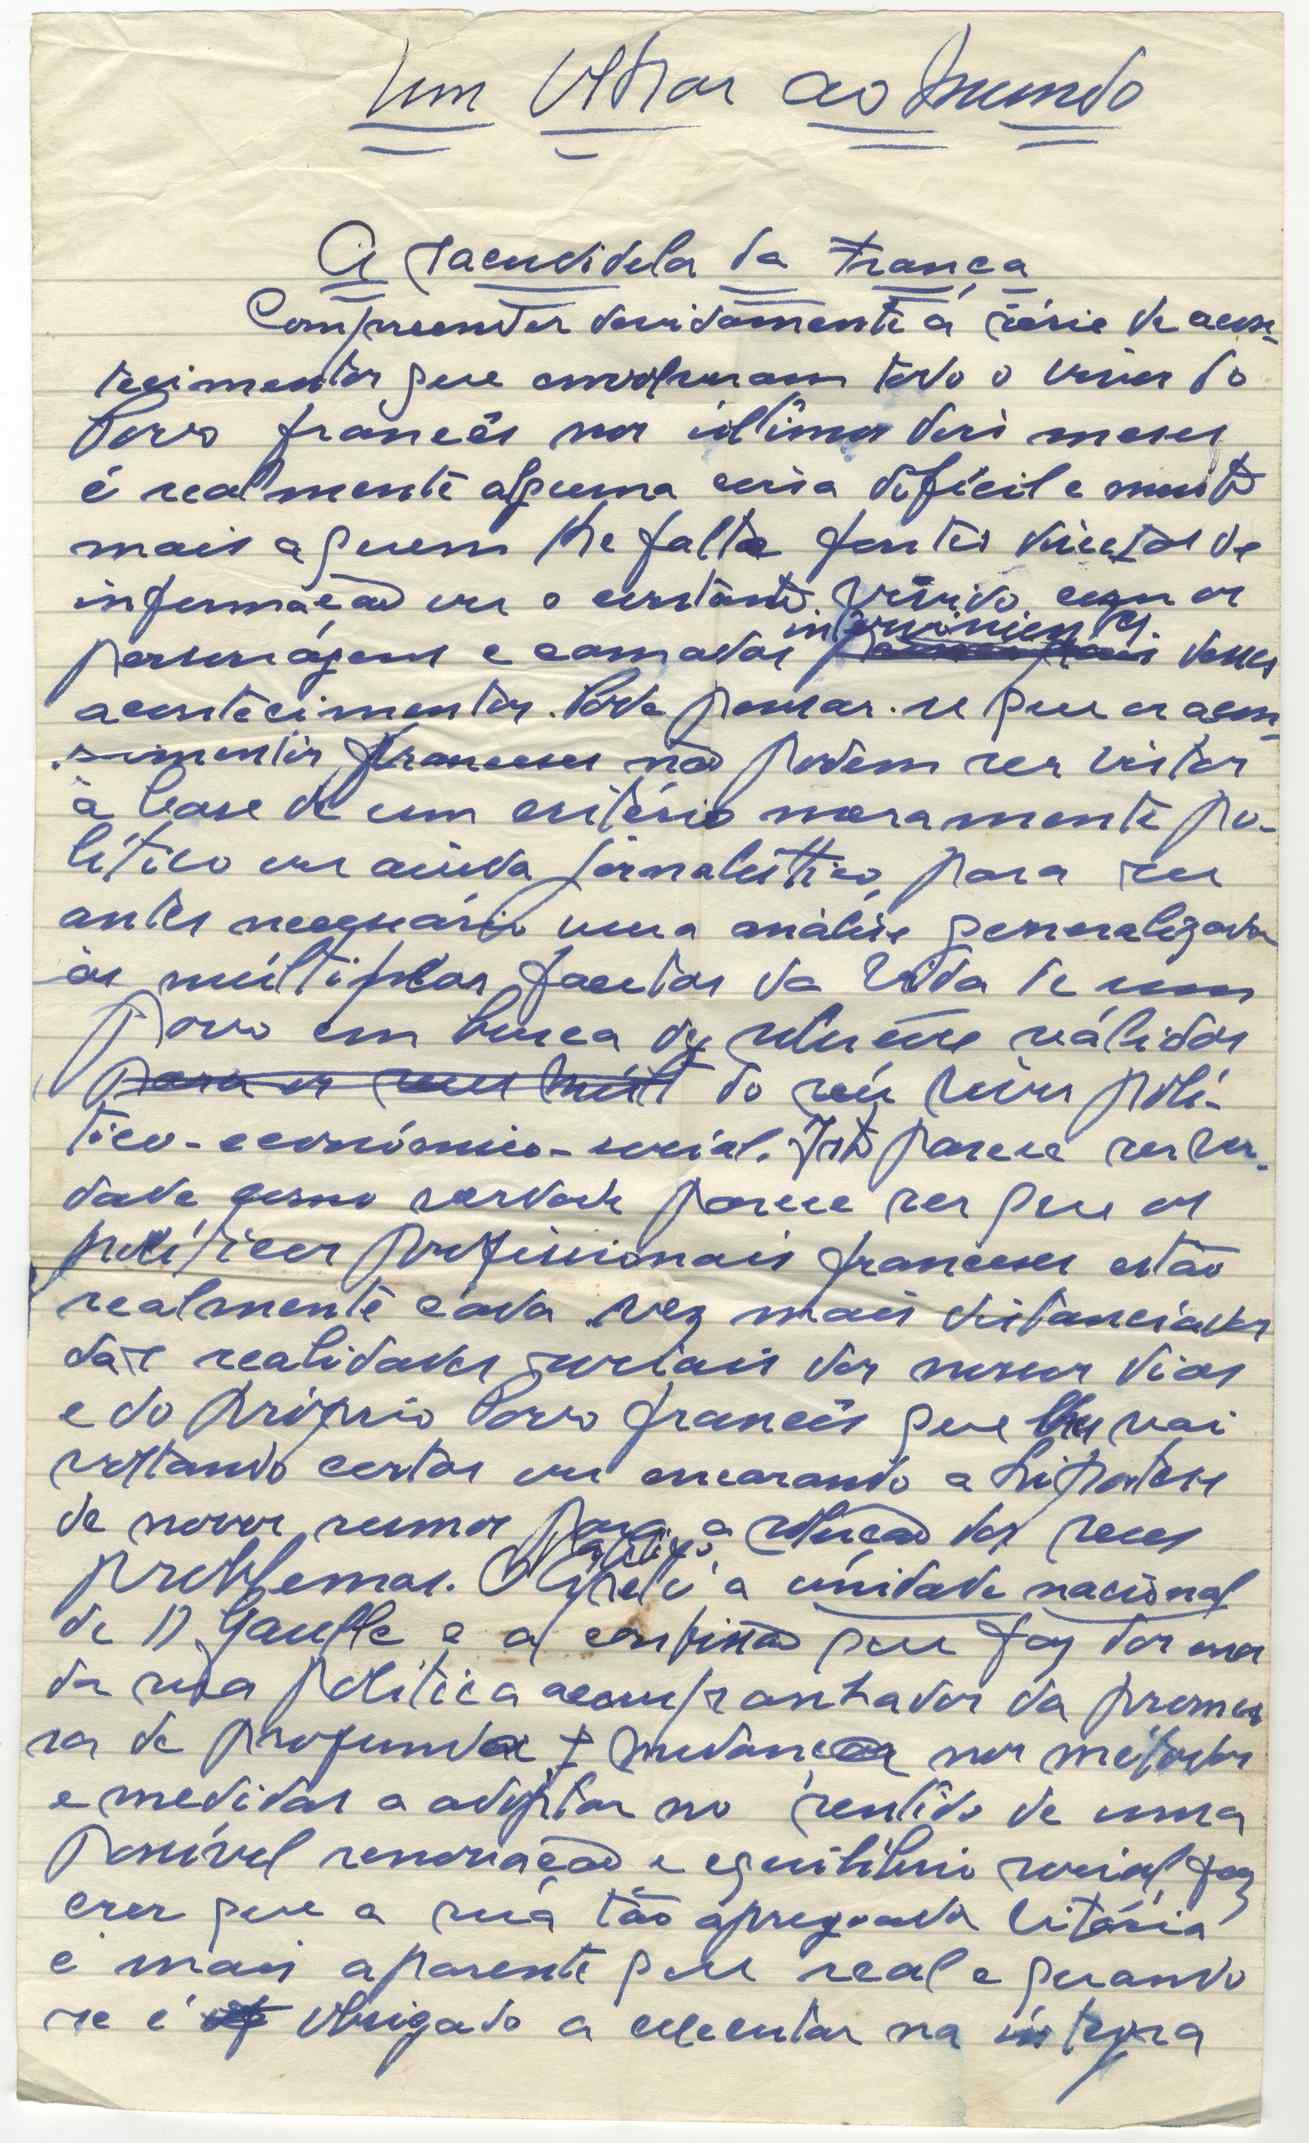 Um Olhar ao Mundo
A sacudidela da França
Compreender devidamente a série de acon-
tecimentos que envolveram todo o viver do
Povo francês nos últimos dois meses
é realmente alguma coisa difícil e muito
mais a quem lhe falta fontes directas de
informação ou o contacto vivido com os
intervenientes
personágens e camadas desses
acontecimentos. Pode pensar-se que os acon-
simentos franceses não podem ser vistos
à base de um critério meramente po-
lítico ou ainda jornalístico, para ser
antes necessário uma análise generalizada
às múltiplas facetas da vida de um
Povo em busca de soluções válidas
para os seus do seu viver polí-
tico-económico-social. Isto parece ser ver-
dade como verdade parece ser que os
políticos profissionais franceses estão
realmente cada vez mais distanciados
das realidades sociais dos nossos dias
e do próprio Povo francês que lhes vai
voltando costas ou encarando a hipótese
de novos rumos para a solução dos seus
problemas. O apelo a unidade nacional
de D Gaulle e a confissão que faz dos erros
da sua política acompanhados da promes
sa de profundas mudanças nos métodos
e medidas a adoptar no sentido de uma
possível renovação e equilíbrio social, faz
crer que a sua tão apregoada vitória
é mais aparente que real e quando
se é obrigado a executar na íntegra